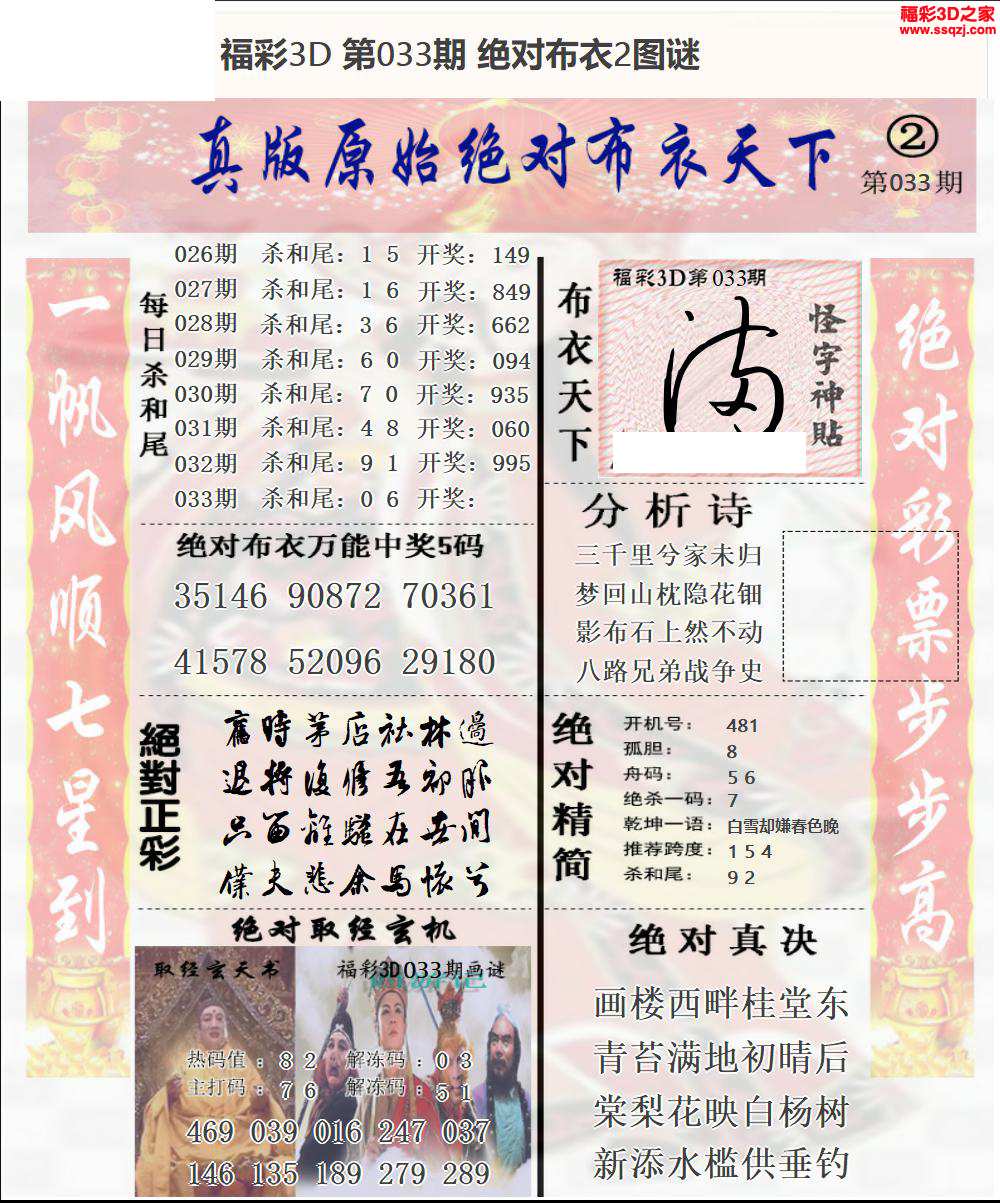 福彩3D之家
www.ssqzj.com
福彩3D 第033期 绝对布衣2图谜
真版原始绝对布衣天下
②
第033期
一帆风顺七星到
每日杀和尾
026期 杀和尾：1 5 开奖：149
027期 杀和尾：1 6 开奖：849
028期 杀和尾：3 6 开奖：662
029期 杀和尾：6 0 开奖：094
030期 杀和尾：7 0 开奖：935
031期 杀和尾：4 8 开奖：060
032期 杀和尾：9 1 开奖：995
033期 杀和尾：0 6 开奖：
绝对布衣万能中奖5码
35146 90872 70361
41578 52096 29180
絕對正彩
舊時茅店社林邊
退将復修吾初服
只留離騷在世间
僕夫悲余馬懷兮
绝对取经玄机
取经玄天书
福彩3D033期画谜
热码值：8 2 解冻码：0 3
主打码：7 6 解冻码：5 1
469 039 016 247 037
146 135 189 279 289
布衣天下
福彩3D第033期
怪字神貼
分析诗
三千里兮家未归
梦回山枕隐花钿
影布石上然不动
八路兄弟战争史
绝对精简
开机号：481
孤胆：8
舟码：5 6
绝杀一码：7
乾坤一语：白雪却嫌春色晚
推荐跨度：1 5 4
杀和尾：9 2
绝对真决
画楼西畔桂堂东
青苔满地初晴后
棠梨花映白杨树
新添水槛供垂钓
绝对彩票步步高